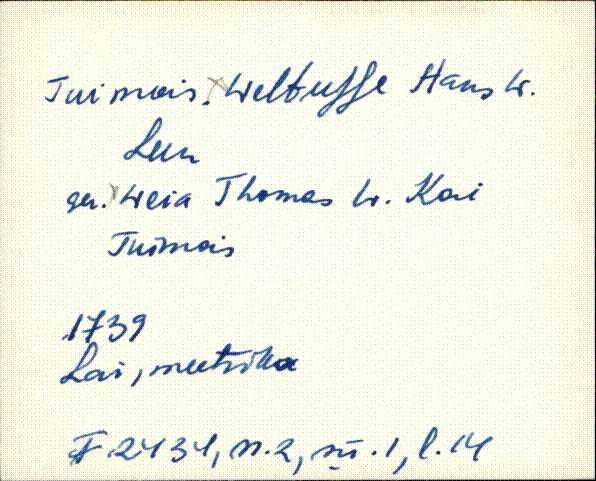 Tuimois. Weltuffe Hans W.
Leen
gen. Weia Thomas W. Kai
Tuimois
1739
Lai, meetrika
F 2434, n. 2, sü. 1, l. 14